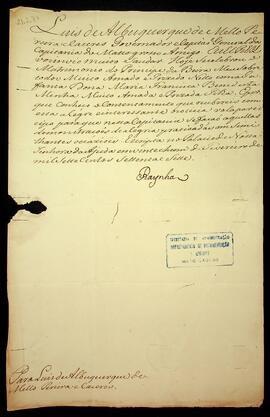 Luis de Albuquerque de Mello Pe
reira e Caceres Governador e Capitaõ General da
Capitania do Matto grosso Amigo. Eu El Rey
vos envio muito Saudar. Hoje se celebrou o
Matrimonio do Principe da Beira Meu sobre
todos Muito Amado e Prezado Neto com a In
fanta Dona Maria Francisca Benedicta
Minha Muito Amada e Prezada Filha. O par
que
esta alegre e interessante noticia
vos para que nessa Capitania se façaõ aquellas
demonstraçoens de alegria praticadas em Seme
lhantes occazioens. Escripta no Palacio de Nossa
Senhora da Ajuda em vinte e hum de Fevereiro de
mil Sette Centos Settenta e Sette.
Raynha
SECRETARIA DE ADMINISTRAÇÃO
DEPARTAMENTO DE DOCUMENTAÇÃO
E ARQUIVO
Para Luis de Albuquerque de
Mello Pereira e Caceres.